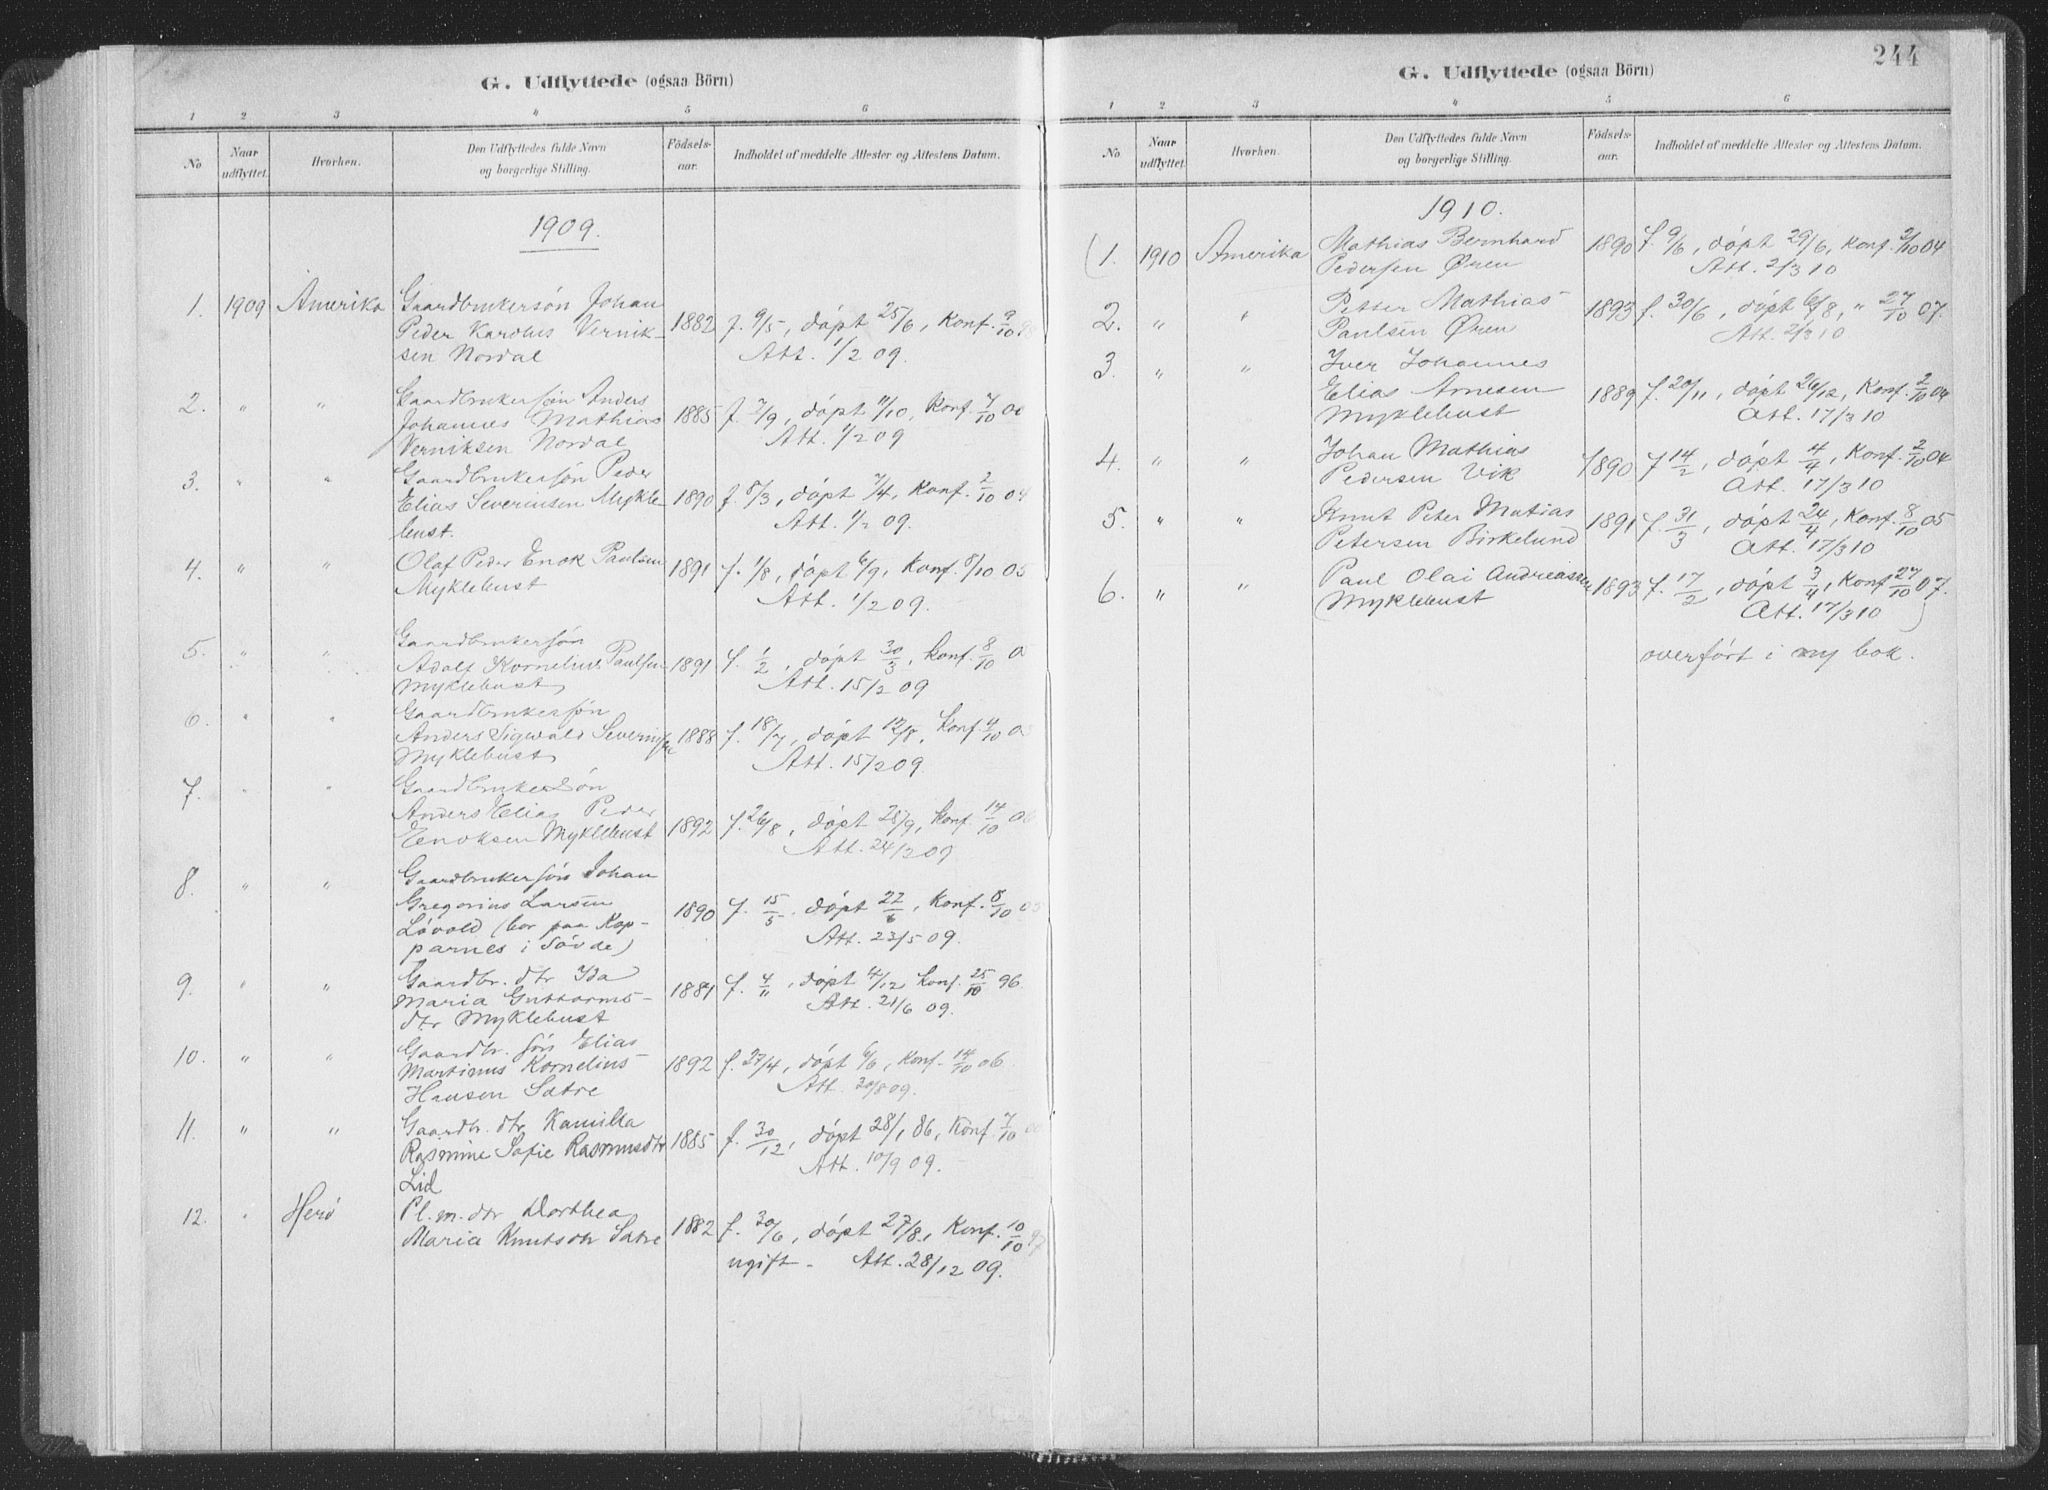 G. Udflyttede (ogsaa Börn)
1 2 3 4 5 6
No Naar udflyttet. Hvorhen. Den Udflyttedes fulde Navn og borgerlige Stilling. Fødsels-aar. Indholdet af meddelte Attester og Attestens Datum.
1909.
1. 1909 Amerika Gaardbrukersön Johan
Peder Karolus Vernik- 1882 f. 9/5, döpt 25/6, Konf. 9/10
sen Nordal Att. 1/2 09.
2. " " Gaardbrukersön Anders
Johannes Mathias 1885 f. 7/9, döpt 11/10, Konf. 7/10 00
Verniksen Nordal Att. 1/2 09
3. " " Gaardbrukersön Peder
Elias Severinsen Mykle- 1890 f. 8/3, döpt 7/4, Konf. 2/10 04
bust. Att. 1/2 09.
4. " " Olaf Peder Enok Paulsen 1891 f. 1/8, döpt 6/9, Konf. 8/10 05
Myklebust Att. 1/2 09.
5. " " Gaardbrukersön
Adolf Kornelius Paulsen 1891 f. 1/2, döpt 30/3, Konf. 8/10 0
Myklebust Att. 15/2 09
6. " " Gaardbrukersön
Anders Sigwald Severinsen 1888 f. 18/7, döpt 12/8, Konf. 4/10 0
Myklebust Att. 15/2 09.
7. " " Gaardbrukersön
Anders Elias Peder
Enoksen Myklebust 1892 f. 26/8, döpt 25/9, Konf. 14/10 06
Att. 24/2 09
8. " " Gaardbrukersön Johan
Gregorius Larsen 1890 f. 15/5, döpt 22/6, Konf. 8/10 05
Lövold (bor paa Kop- Att. 23/5 09.
parnes i Sövde)
9. " " Gaardbr. dtr Ida
Maria Guttorms- 1881 f. 4/11, döpt 4/12 Konf. 25/10 96
dtr Myklebust Att. 21/6 09.
10. " " Gaardbr. sön Elias
Martinus Kornelius 1892 f. 27/4, döpt 6/6, Konf. 14/10 06
Hansen Sætre Att. 20/8 09.
11. " " Gaardbr. dtr Kamilla
Rasmine Sofie Rasmusdtr 1885 f. 30/12, döpt 28/1 86, Konf. 7/10 00
Lid Att. 10/9 09.
12. " Herö Pl. m. dtr Dorthea
Maria Knutsdtr Sætre 1882 f. 30/6, döpt 27/8, Konf. 10/10 97
ugift - Att. 28/12 09.
244
G. Udflyttede (ogsaa Börn)
1 2 3 4 5 6
No. Naar udflyttet. Hvorhen. Den Udflyttedes fulde Navn og borgerlige Stilling. Fødsels-aar. Indholdet af meddelte Attester og Attestens Datum.
1910.
(1. 1910 Amerika Mathias Bernhard 1890 f. 9/6, döpt 29/6, Konf. 2/10 04
Pedersen Øren Att. 2/3 10
2. " " Petter Mathias 1893 f. 30/6, döpt 6/8, " 27/10 07.
Paulsen Øren Att. 2/3 10
3. " " Iver Johannes
Elias Arnesen 1889 f. 20/11, döpt 26/12, Konf. 2/10 04
Myklebust Att. 17/3 10
4. " " Johan Mathias 1890 f 14/2, döpt 4/4, Konf. 2/10 04
Pedersen Vik Att. 17/3 10
5. " " Knut Peter Matias 1891 f. 31/3, döpt 24/4, Konf. 8/10 05
Petersen Birkelund Att. 17/3 10
6. " " Paul Olai Andreassen 1893 f. 17/2, döpt 3/4, Konf 27/10 07.
Myklebust Att. 17/3 10 )
overfört i ny bok.